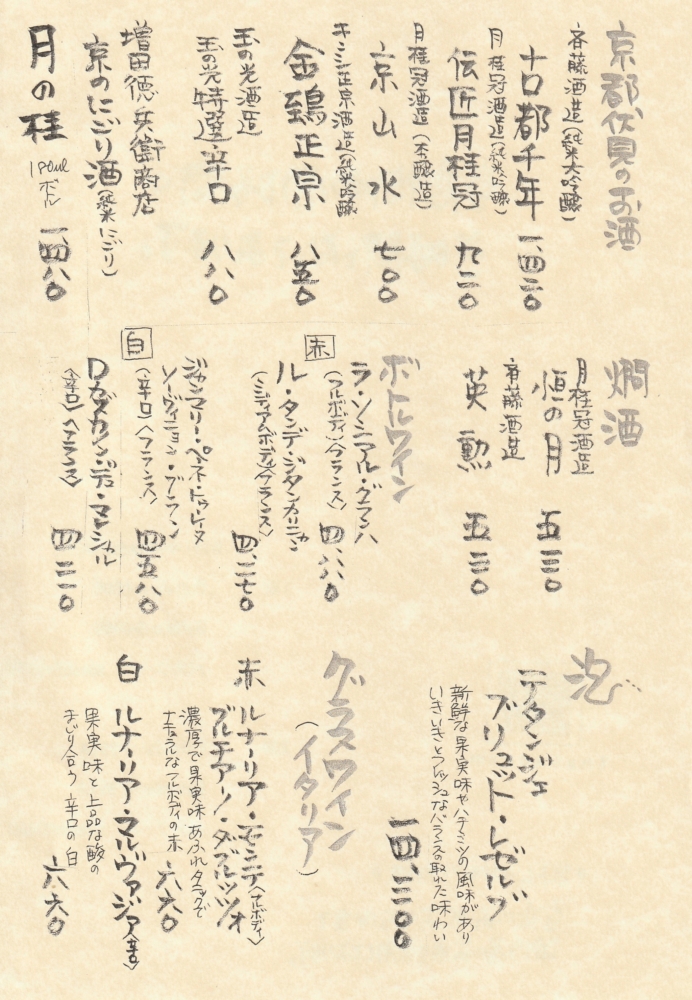 京都伏見のお酒
斉藤酒造(純米大吟醸)
古都千年 一、四二〇
月桂冠酒造(純米吟醸)
伝匠月桂冠 九二〇
月桂冠酒造(本醸造)
京山水 七〇〇
キンシ正宗酒造(純米吟醸)
金鵄正宗 八五〇
玉の光酒造
玉の光特選辛口 八八〇
増田德兵衛商店
京のにごり酒(純米にごり)
月の桂 180ml ボトル 一、四八〇
燗酒
月桂冠酒造
恒の月 五三〇
斉藤酒造
英勲 五三〇
ボトルワイン
赤
ラ・ソシアル・グランハ
(フルボディ)〈フランス〉 四、八〇
ル・タンデ・ジタンカリニャン
(ミディアムボディ)〈フランス〉 四、二七〇
白
ジャンマリー・ペネ・トゥーレーヌ
ソーヴィニョン・ブラン
(辛口)〈フランス〉 四五八〇
ロガダカノンバデ・マレシャル
(辛口)〈フランス〉 四、二二〇
泡
テタンジェ
ブリュット・レゼルヴ
新鮮な果実味やハチミツの風味があり
いきいきとフレッシュなバランスの取れた味わい
一四、三〇〇
グラスワイン
(イタリア)
赤 ルナーリア・モンテ〈フルボディ〉
プルチアーノ・ダブルッツォ
濃厚で果実味あふれタニックで
ナチュラルなフルボディの赤 六六〇
白 ルナーリア・マルヴァジア〈辛口〉
果実味と上品な酸の
まじり合う辛口の白 六六〇